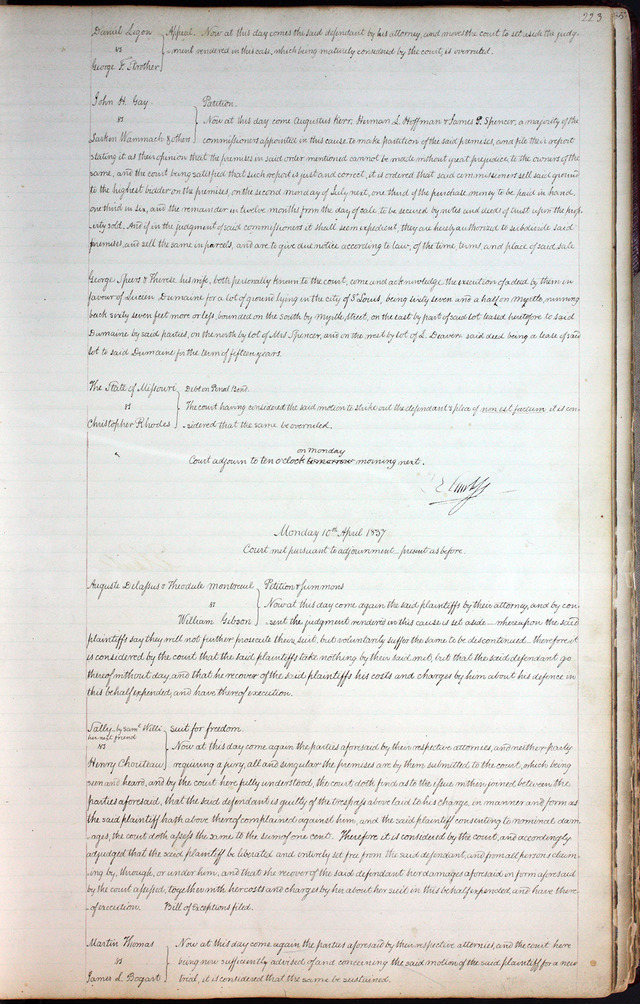 223
Daniel Ligon } Appeal. Now at this day comes the said defendant by his attorney, and moves the court to set aside the judg-
vs } ment rendered in this case, which being maturely considered by the court, is overruled.
George F. Strother
John H. Gay } Petition.
vs } Now at this day come Augustus Kerr, Herman L Hoffman & James S. Spencer, a majority of the
Sarken Wammach & others } commissioners appointed in this cause to make partition of the said premises, and file their report
stating it as their opinion that the premises in said order mentioned cannot be made without great prejudice, to the owners of the
same, and the court being satisfied that such report is just and correct, it is ordered that said commissioners sell said ground
to the highest bidder on the premises, on the second monday of July next, one third of the purchase money to be paid in hand,
one third in six, and the remainder in twelve months from the day of sale to be secured by notes and deeds of trust upon the prop-
erty sold. And if in the judgment of said commissioners it shall seem expedient, they are hereby authorized to subdivide said
premises, and sell the same in parcels, and are to give due notice according to law, of the time, terms, and place of said sale
George Speers & Therese his wife, both personally known to the court, come and acknowledge the execution of a deed by them in
favour of Lucien Dumaine for a lot of ground lying in the city of St Louis, being sixty seven and a half on Myrtle, running
back sixty seven feet more or less, bounded on the south by Myrtle Street, on the east by part of said lot leased heretofore to said
Dumaine by said parties, on the north by lot of Mrs Spencer, and on the west by lot of L. Deaver. said deed being a lease of said
lot to said Dumaine for the term of fifteen years.
The State of Missouri } Debt on Penal Bond.
vs } The court having considered the said motion to strike out the defendant's plea of non est factum it is con-
Christopher Rhodes } sidered that the same be overruled.
on monday
Court adjourn to ten o'clock tomorrow morning next.
Monday 10th April 1837
Court met pursuant to adjournment present as before.
Auguste Delassus & Theodule Montreuil } Petition & Summons
vs } Now at this day come again the said plaintiffs by their attorney, and by con-
William Gibson } sent the judgment rendered in this cause is set aside whereupon the said
plaintiffs say they will not further prosecute their suit, but voluntarily suffer the same to be discontinued therefore it
is considered by the court that the said plaintiffs take nothing by their said writ, but that the said defendant go
thereof without day, and that he recover of the said plaintiffs his costs and charges by him about his defence in
this behalf expended, and have thereof execution.
Sally by Saml Willi } suit for freedom.
her next friend
vs } Now at this day come again the parties aforesaid by their respective attornies, and neither party
Henry Chouteau } requiring a jury, all and singular the premises are by them submitted to the court, which being
seen and heard, and by the court here fully understood, the court doth find as to the issue within joined between the
parties aforesaid, that the said defendant is guilty of the trespass above laid to his charge, in manner and form as
the said plaintiff hath above thereof complained against him, and the said plaintiff consenting to nominal dam-
ages, the court doth assess the same to the sum of one cent. Therefore it is considered by the court, and accordingly
adjudged that the said plaintiff be liberated and entirely set free from the said defendant, and from all persons claim-
ing by, through, or under him, and that she recover of the said defendant her damages aforesaid in form aforesaid
by the court assessed, together with her costs and charges by her about her suit in this behalf expended, and have there-
of execution. Bill of Exceptions filed.
Martin Thomas } Now at this day come again the parties aforesaid by their respective attornies, and the court here
vs } being now sufficiently advised of and concerning the said motion of the said plaintiff for a new
James L Bogart } trial, it is considered that the same be sustained.